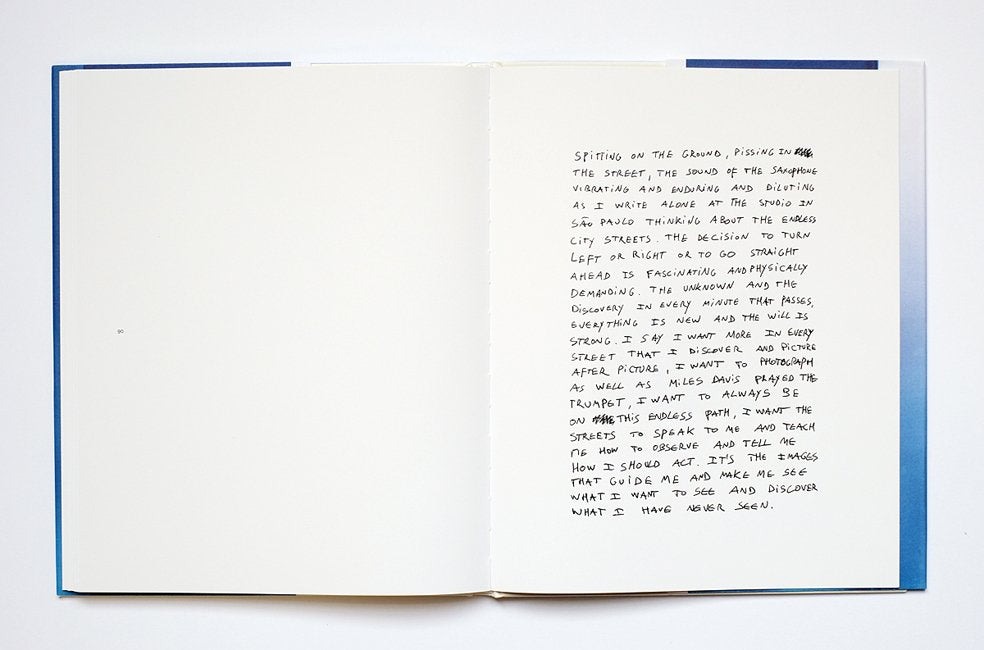 8
SPITTING ON THE GROUND, PISSING IN
THE STREET, THE SOUND OF THE SAXOPHONE
VIBRATING AND ENDURING AND DILUTING
AS I WRITE ALONE AT THE STUDIO IN
SÃO PAULO THINKING ABOUT THE ENDLESS
CITY STREETS. THE DECISION TO TURN
LEFT OR RIGHT OR TO GO STRAIGHT
AHEAD IS FASCINATING AND PHYSICALLY
DEMANDING. THE UNKNOWN AND THE
DISCOVERY IN EVERY MINUTE THAT PASSES,
EVERYTHING IS NEW AND THE WILL IS
STRONG. I SAY I WANT MORE IN EVERY
STREET THAT I DISCOVER AND PICTURE
AFTER PICTURE, I WANT TO PHOTOGRAPH
AS WELL AS MILES DAVIS PRAYED THE
TRUMPET, I WANT TO ALWAYS BE
ON THIS ENDLESS PATH, I WANT THE
STREETS TO SPEAK TO ME AND TEACH
ME HOW TO OBSERVE AND TELL ME
HOW I SHOULD ACT. IT'S THE IMAGES
THAT GUIDE ME AND MAKE ME SEE
WHAT I WANT TO SEE AND DISCOVER
WHAT I HAVE NEVER SEEN.